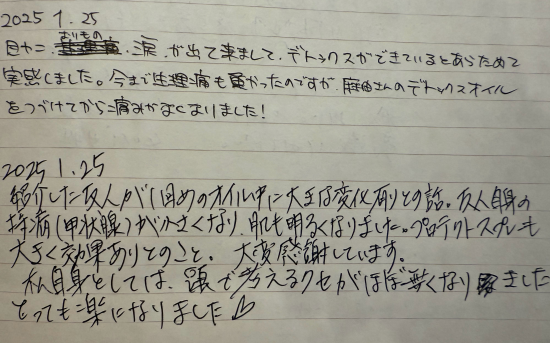 2025 1.25
目ヤニ、おりもの、涙が出て来まして、デトックスができているとあらためて
実感しました。今まで生理痛も重かったのですが、麻由さんのデトックスオイル
をつづけてから痛みがなくなりました!
2025 1.25
紹介した友人が1個めのオイル中に大きな変化有りとの話。友人自身の
持病(甲状腺)が小さくなり、肌も明るくなりました。プロテクトスプレーも
大きく効果ありとのこと。大変感謝しています。
私自身としては、頭で考えるクセがほぼ無くなりました
とっても楽になりました